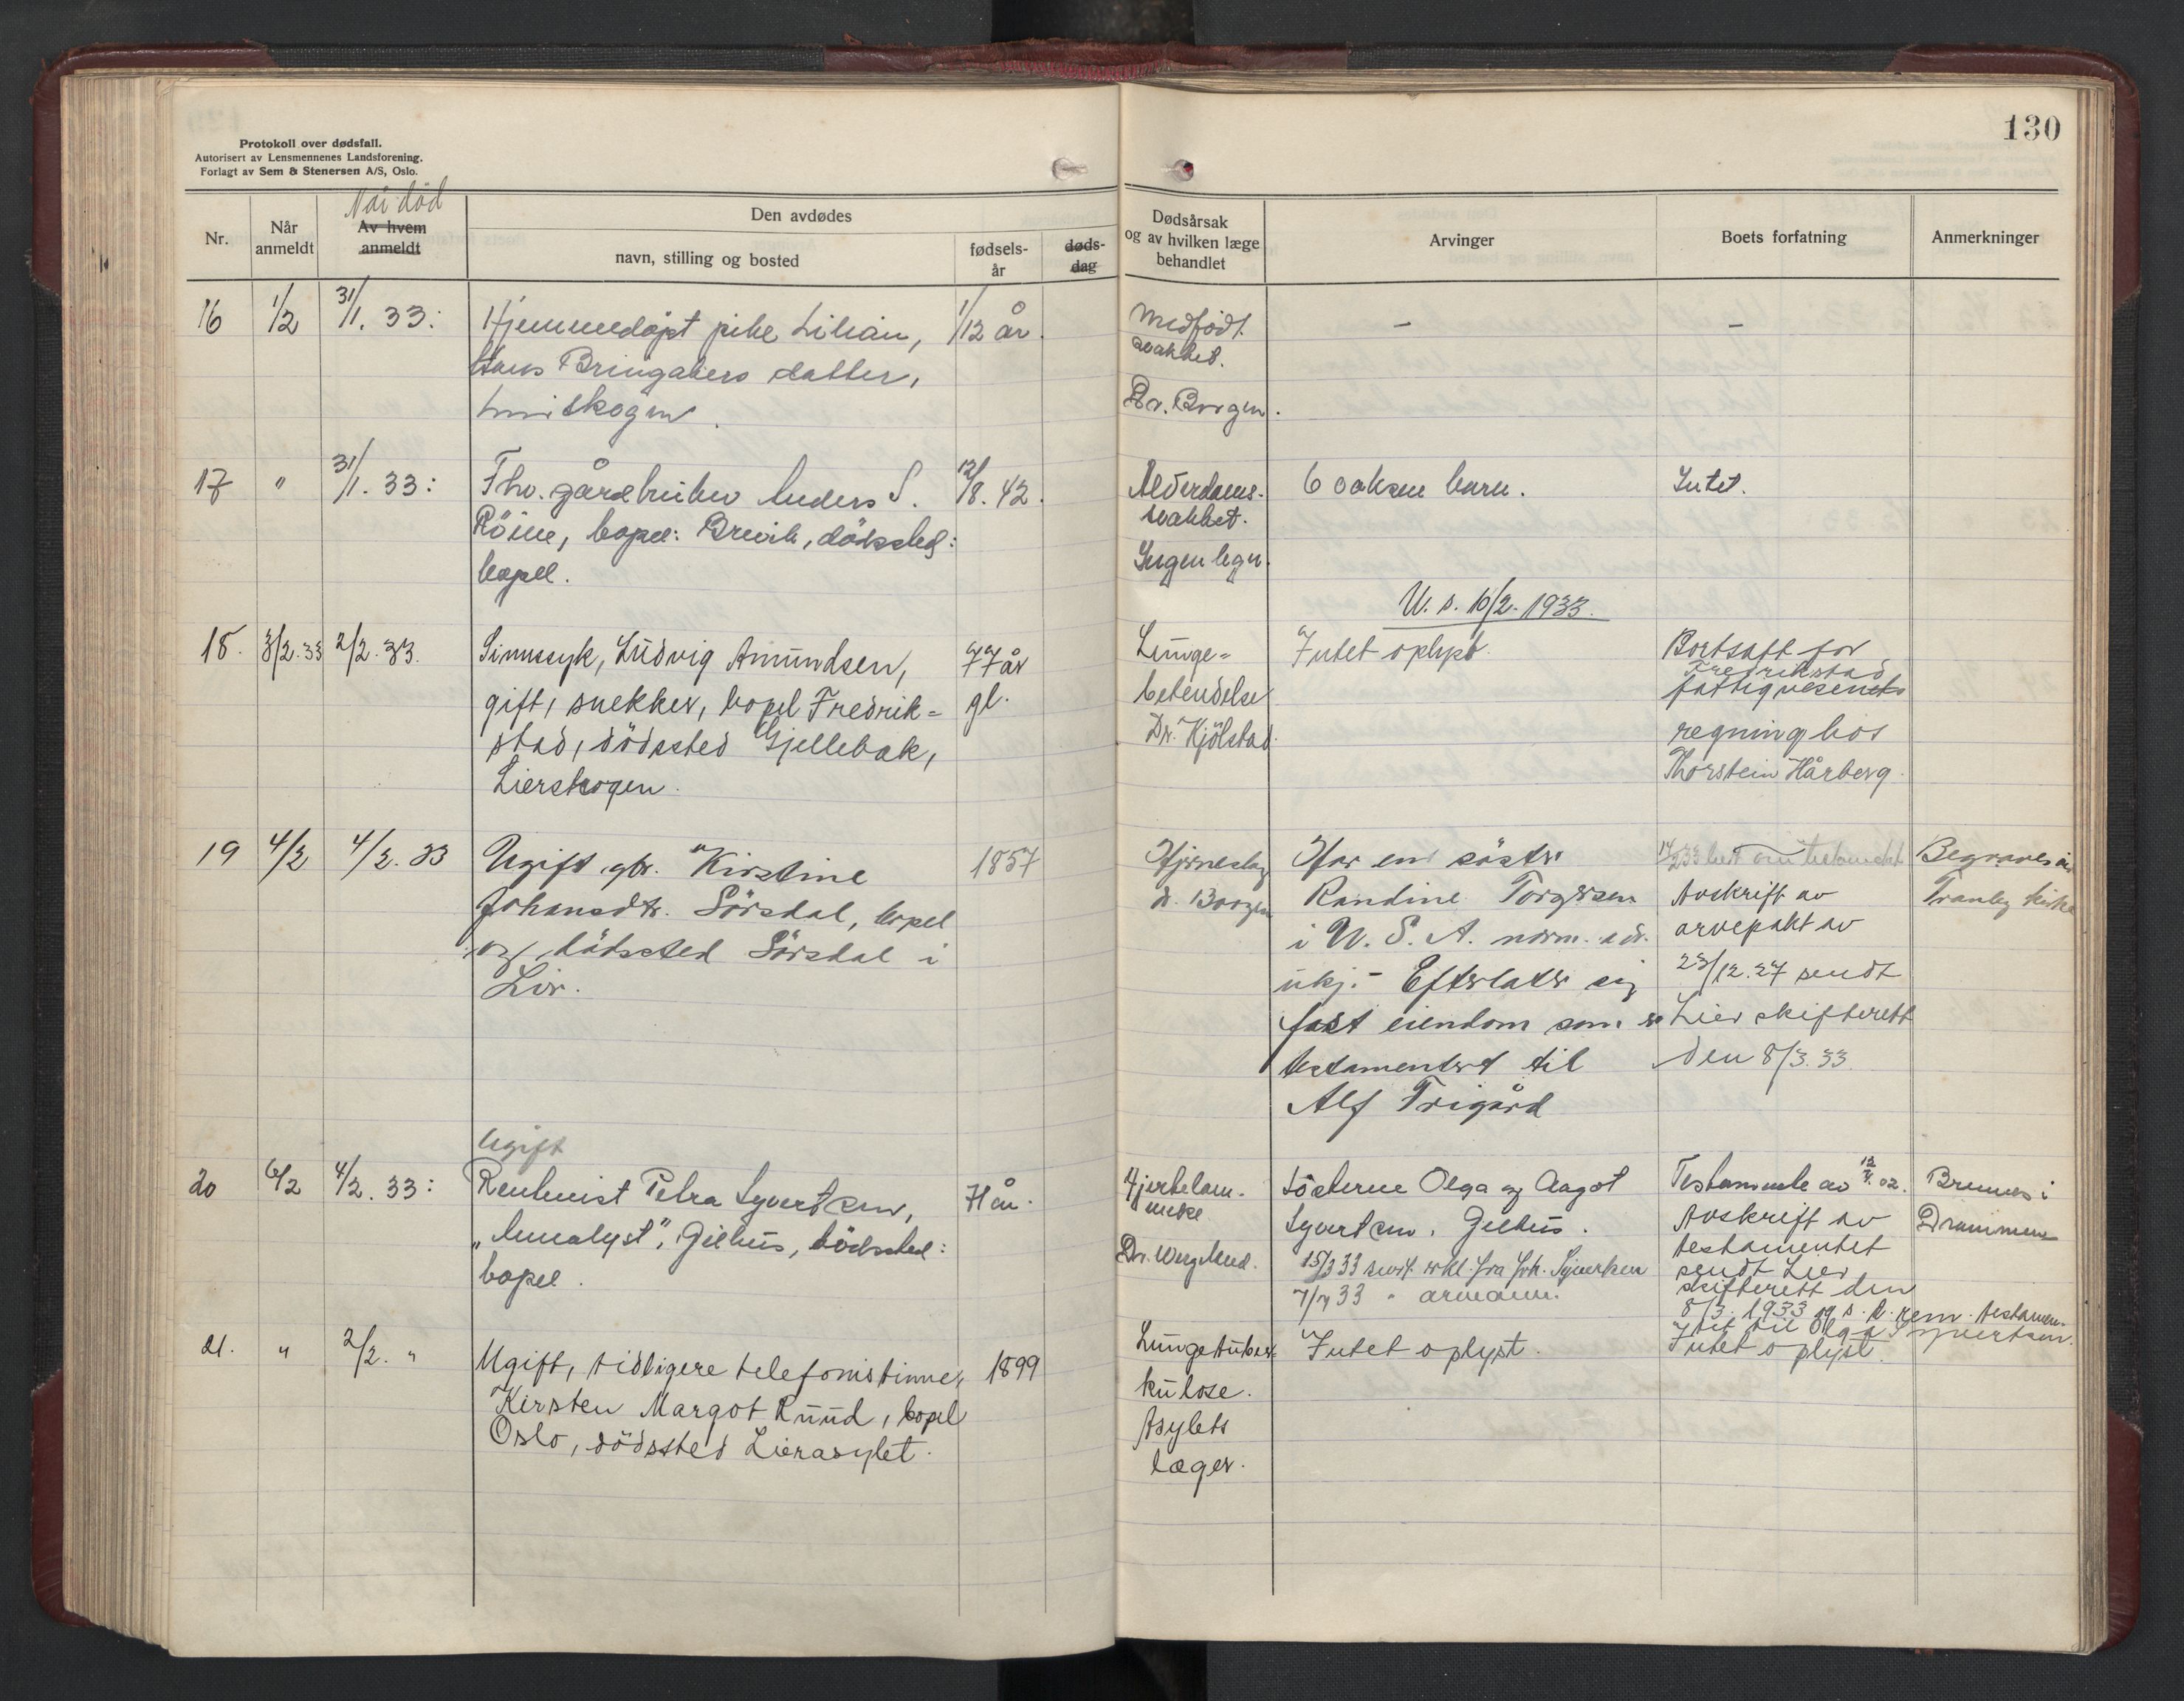 130
Protokoll over dødsfall.
Autorisert av Lensmennenes Landsforening.
Forlagt av Sem & Stenersen A/S, Oslo.
Nr.
Når anmeldt
Når død
Av hvem anmeldt
Den avdødes
navn, stilling og bosted
fødsels-år
døds-dag
Dødsårsak og av hvilken læge behandlet
Arvinger
Boets forfatning
Anmerkninger
16 1/2 31/1. 33: Hjemmedøpt pike Lilian, 1/12 år. Medfødt - -
Hans Bringakers datter, svakhet.
Dr. Borgen.
17 " 31/1. 33: Fhv. gårdbruker Anders S. 12/8. 42. Alderdoms- 6 voksne barn. Intet.
Röine, bopel: Brevik, dödssted: svakhet.
bopel. Ingen lege.
U. s. 10/2. 1933.
18. 3/2.33 2/2. 33. Sinnssyk, Ludvig Amundsen, 77 år Lunge- Intet oplyst. Bortsatt for
Fredrikstad
gift, snekker, bopel Fredrik- gl. betendelse fattigvesenets
stad, dödssted Gjellebæk, Dr. Kjölstad. regning hos
Lierskogen. Thorstein Hårberg.
19 4/2 4/2. 33 Ugift gbr. Kirstine 1857 Hjerneslag Har en söster Begraves i
Johansdtr. Sörsdal, bopel dr. Borgen Randine Torgersen Avskrift av Tranby kirke
og dödssted Sörsdal i i U. S. A. nærm. adr. arvepakt av
Lier. ukj. - Efterlater sig 23/12.27 sendt
fast eiendom som er Lier skifterett
testamentert til den 8/3. 33.
Alf Frigård
Ugift
20 6/2 4/2. 33: Rentenist Petra Syvertsen, 71 år. Hjertelam- Söstrene Olga og Aagot Testamente av 12/5. 02. Brennes i
„Annalyst", Gilhus, dödssted: melse Syvertsen, Gilhus. Avskrift av Drammen
bopel. Dr. Wergeland. 15/3 33 sendt erkl. fra frk. Syvertsen testamentet
7/4 33 " sendt Lier
skifterett den
8/3. 1933 og s. d. rem. testamen-
tet til Olga Syvertsen.
21. " 2/2. " Ugift, tidligere telefonistinne, 1899 Lungetuber- Intet oplyst. Intet oplyst.
Kirsten Margot Ruud, bopel kulose.
Oslo, dödssted Lierasylet. Asylets
læger.